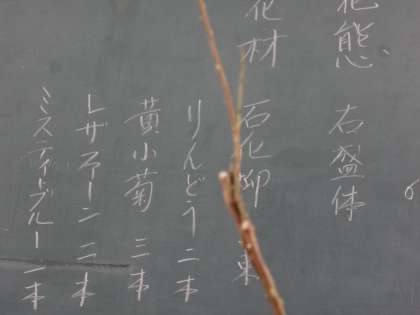 花態 右盛体
花材 石化柳 束
りんどう 二本
黄小菊 三本
レザファーン 二本
ミスティーブルー 二本